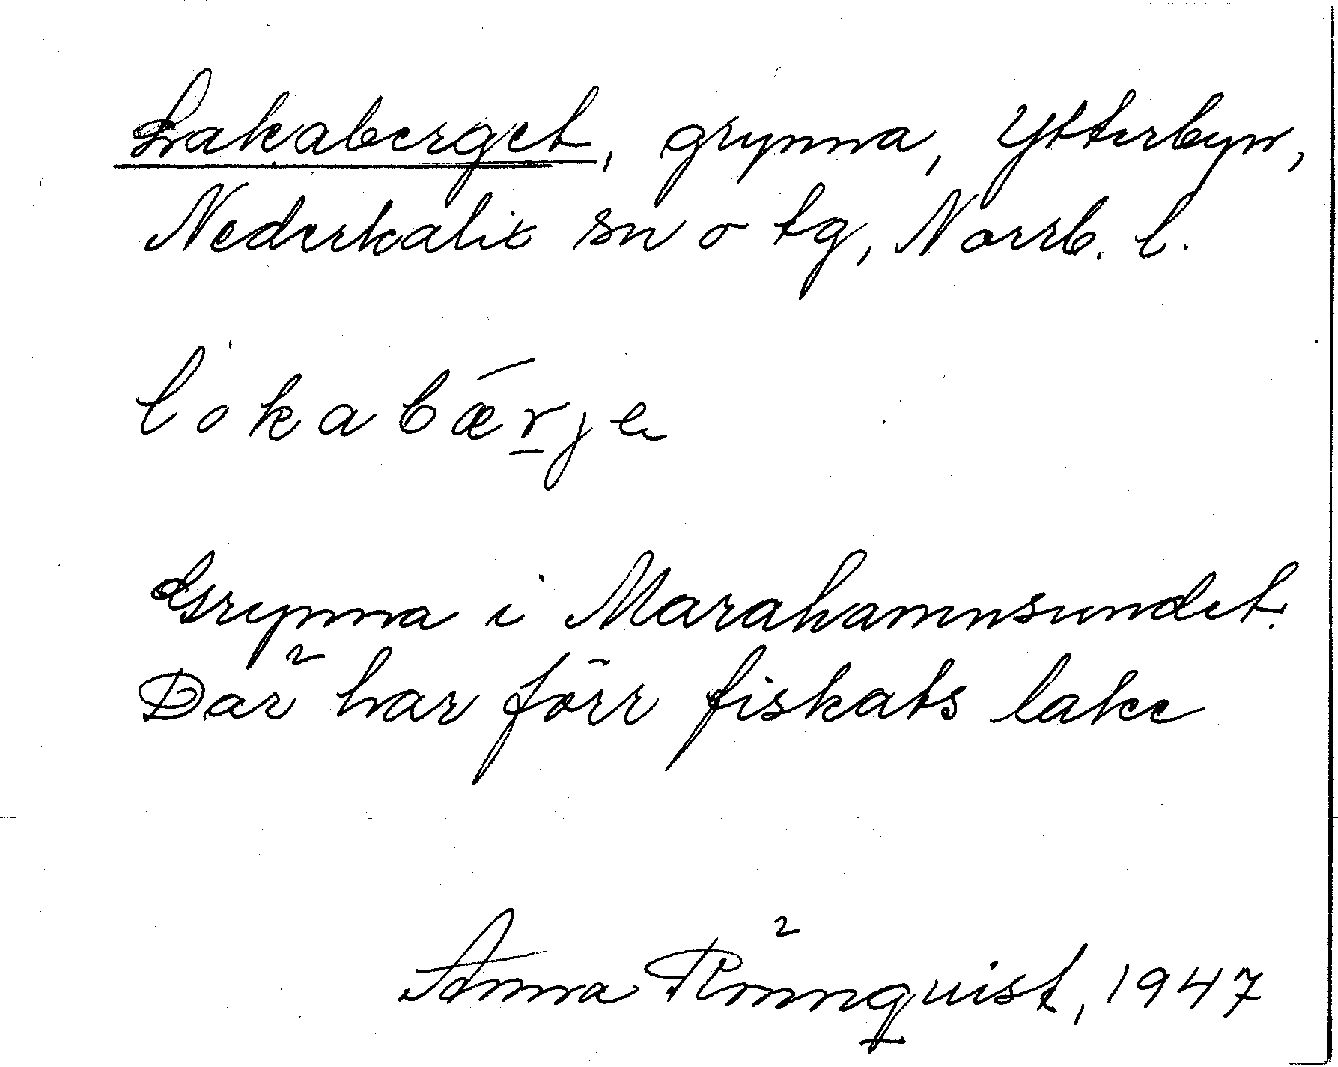 Lakaberget, grynna, Ytterbyn,
Nederkalix sn o tg, Norrb. l.
lokabǽr̲je
Grynna i Marahamnsundet.
Där har förr fiskats lake
Anna Rönnquist, 1947